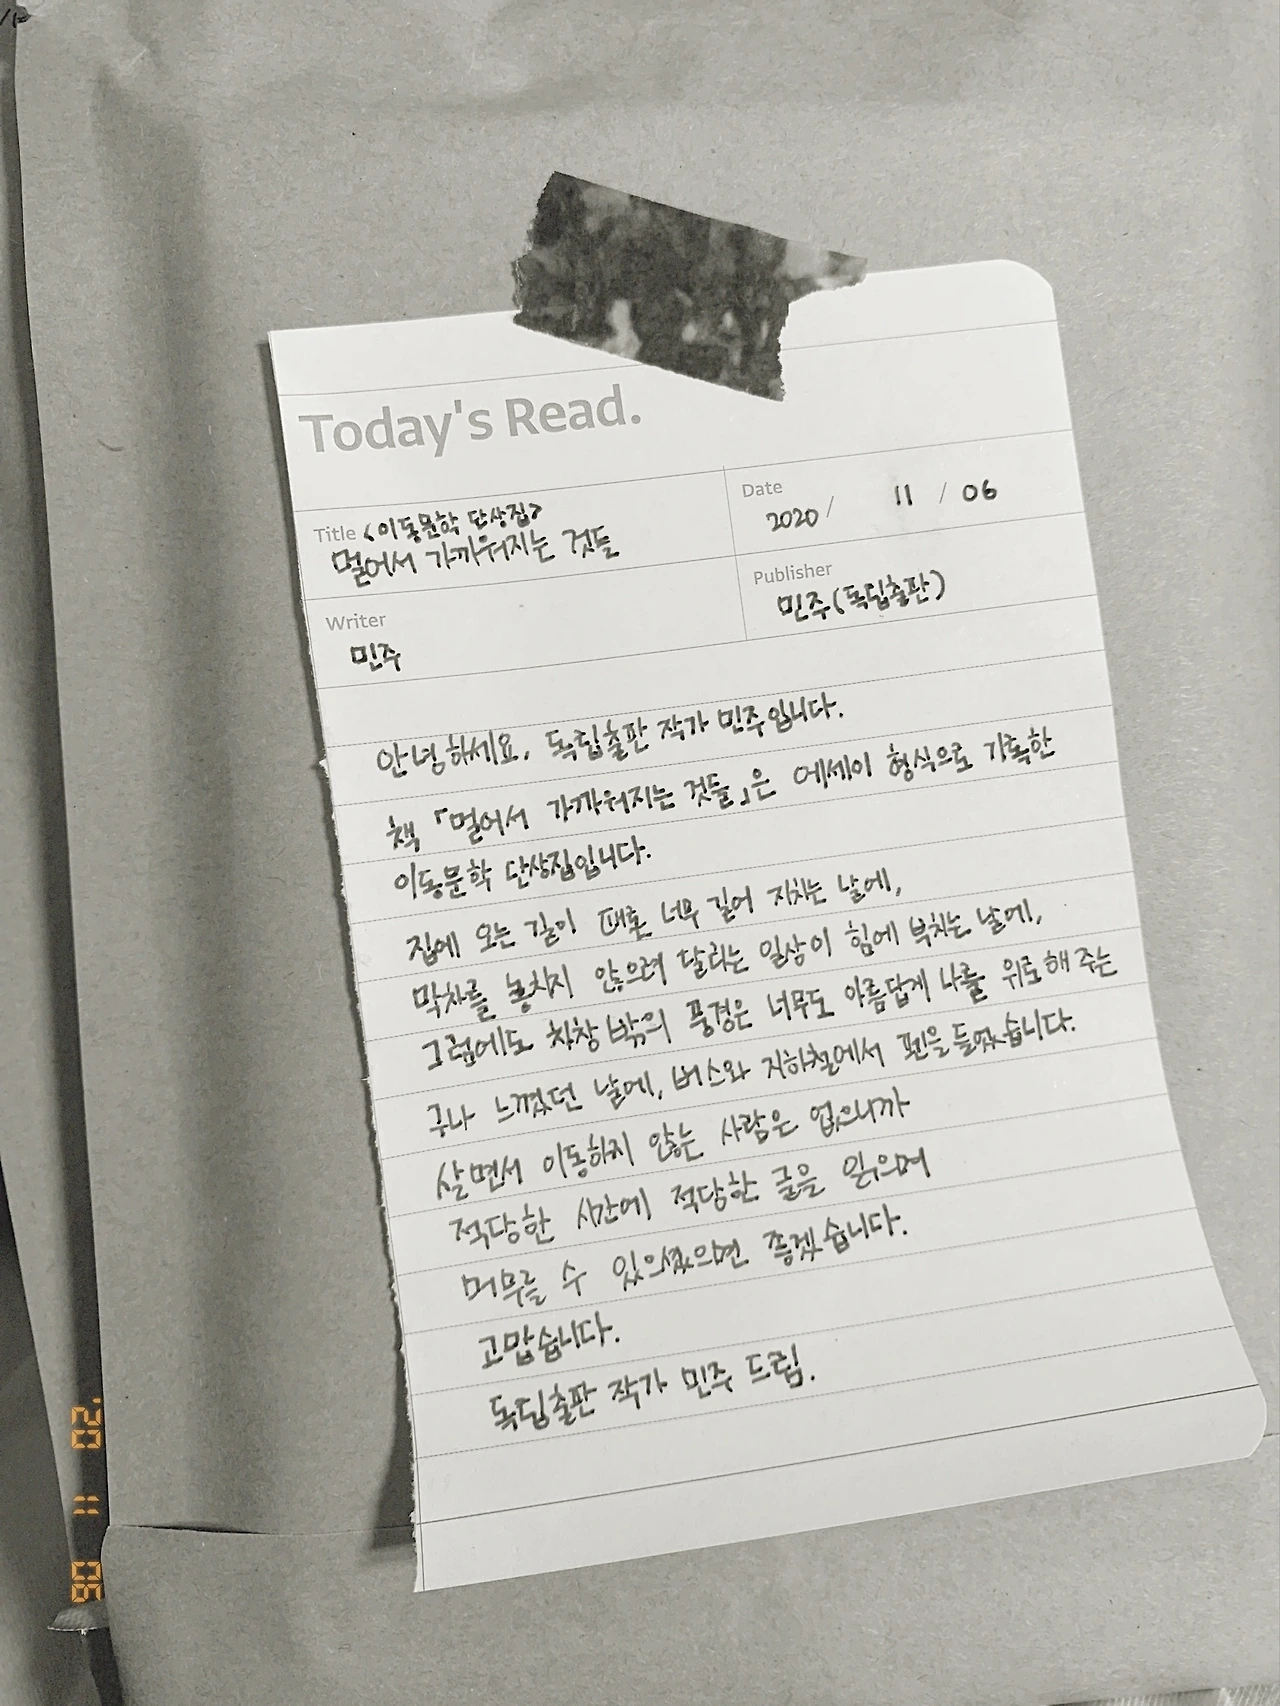 Today's Read.
Title <이동문학 단상집>
멀어서 가까워지는 것들
Date
2020 / 11 / 06
Writer
민주
Publisher
민주(독립출판)
안녕하세요. 독립출판 작가 민주입니다.
책 「멀어서 가까워지는 것들」은 에세이 형식으로 기록한
이동문학 단상집입니다.
집에 오는 길이 때론 너무 길어 지치는 날에,
막차를 놓치지 않으려 달리는 일상이 힘에 부치는 날에,
그럼에도 차창 밖의 풍경은 너무도 아름답게 나를 위로해 주는
구나 느꼈던 날에, 버스와 지하철에서 펜을 들었습니다.
살면서 이동하지 않는 사람은 없으니까
적당한 시간에 적당한 글을 읽으며
머무를 수 있으셨으면 좋겠습니다.
고맙습니다.
독립출판 작가 민주 드림.
'02 11 06